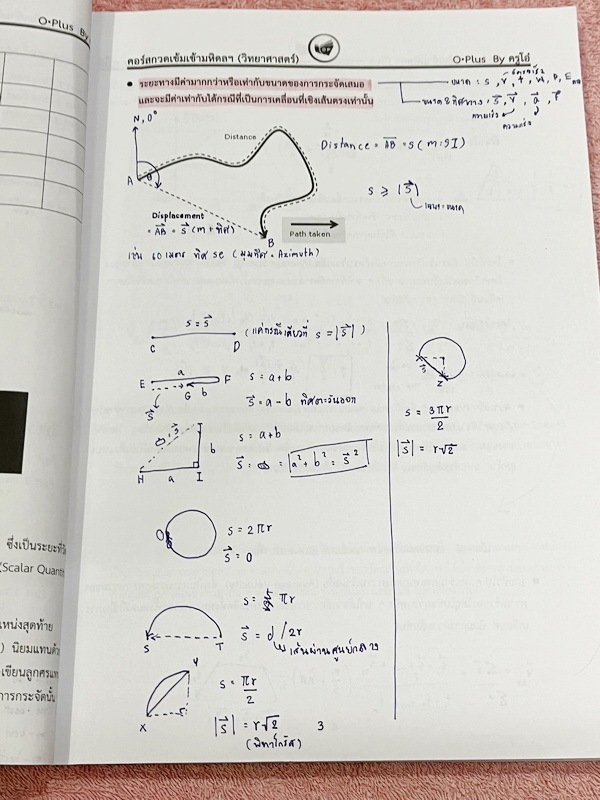 คอร์สกวดเข้มเข้ามหิดลฯ (วิทยาศาสตร์)
O•Plus By ครูโอ๋
• ระยะทางมีค่ามากกว่าหรือเท่ากับขนาดของการกระจัดเสมอ
และจะมีค่าเท่ากันได้กรณีที่เป็นการเคลื่อนที่เชิงเส้นตรงเท่านั้น
N, 0°
Distance
Distance = AB = s ( m : SI )
A
θ
s ≥ |s|
Displacement
= AB = s (m + ทิศ)
B
Path taken
เช่น 60 เมตร ทิศ SE (มุมทิศ = Azimuth)
s = s
C D
s = |s| )
a
E F
G b
s
s = a+b
s = a - b ทิศตะวันออก
s
b
H a I
s = a+b
s = a² + b² = s²
O
s = 2πr
s = 0
S T
s = πr
s = d / 2r
เส้นผ่านศูนย์กลาง
Y
X r
s = πr
2
|s| = r√2
(พีทาโกรัส)
X
s r
Z
s = 3πr
2
|s| = r√2
ซึ่งเป็นระยะที่วั
(Scalar Quanti
เหน่งสุดท้าย
) นิยมแทนด้ว
เขียนลูกศรแท
การกระจัดนั้น
3